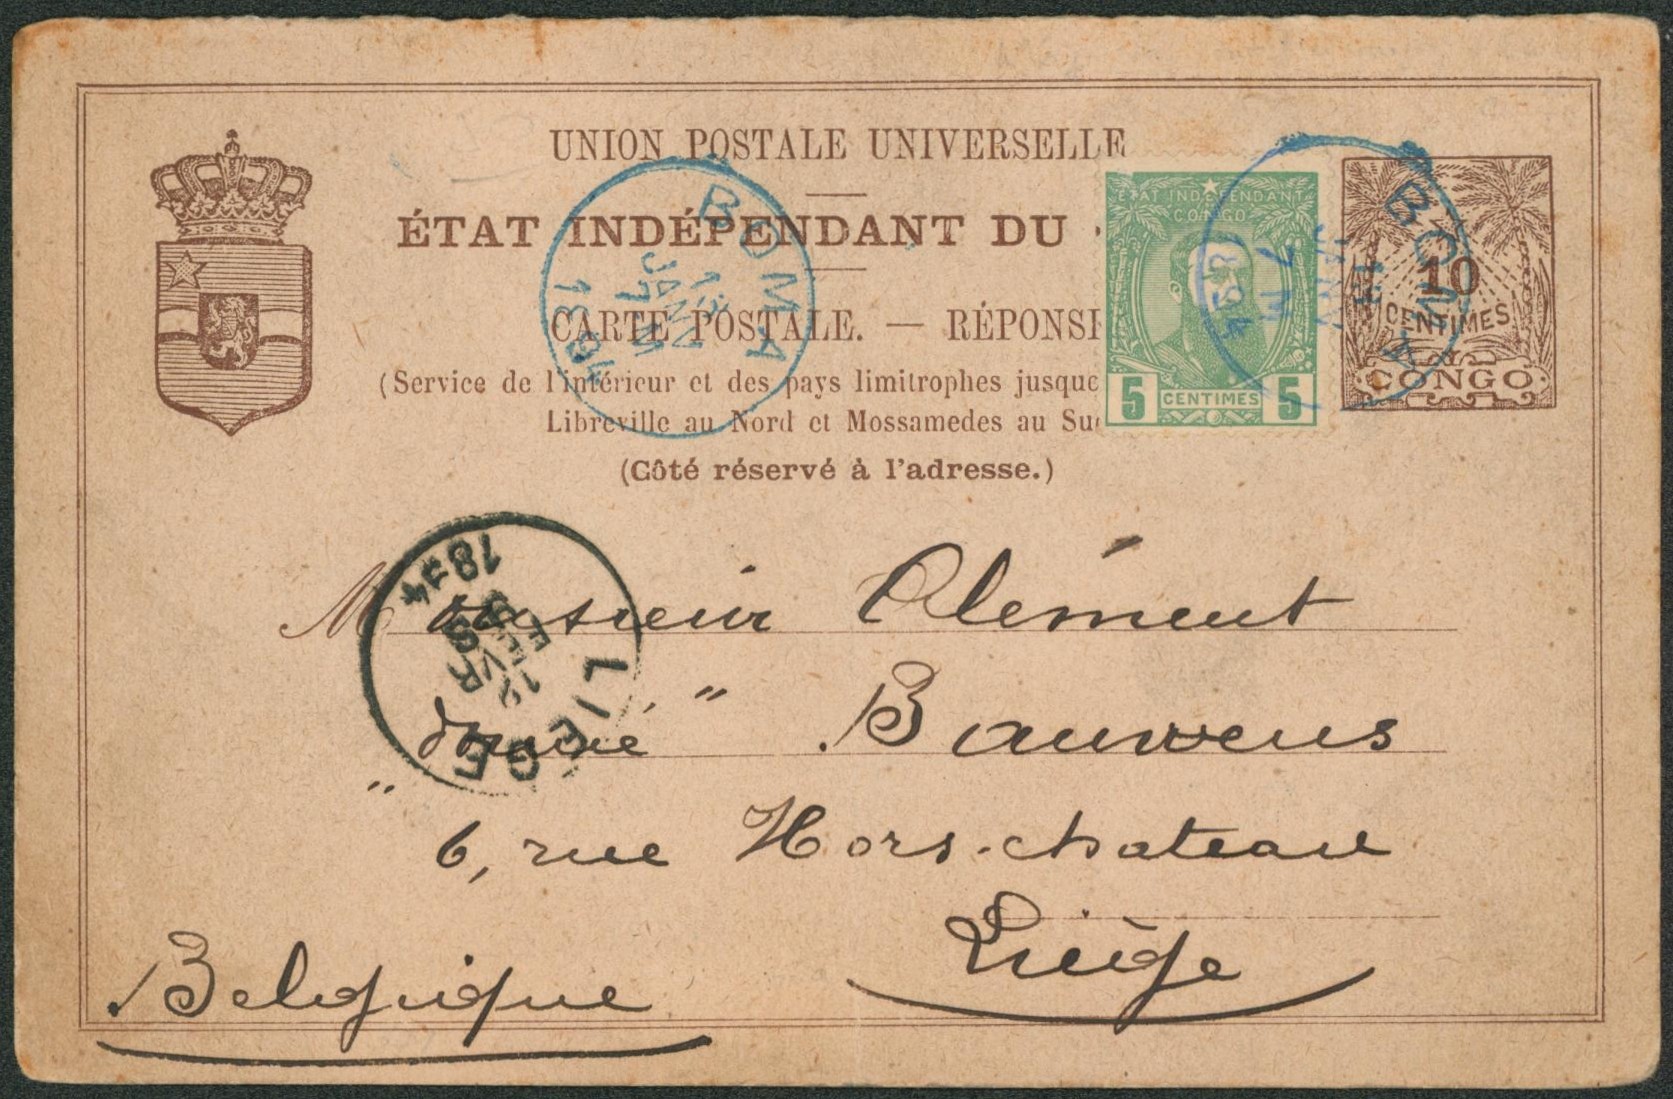 UNION POSTALE UNIVERSELLE
ÉTAT INDÉPENDANT DU
CARTE POSTALE. — RÉPONS
(Service de l'intérieur et des pays limitrophes jusque
Libreville au Nord et Mossamedes au Su
(Côté réservé à l'adresse.)
BOMA
13
JANV
7 M
1894
ÉTAT INDÉPENDANT
CONGO
5 CENTIMES 5
BOMA
7 M
10
CENTIMES
CONGO
LIEGE
12
FEVR
1894
Monsieur Clément
" Bauwens
"
6, rue Hors-chateau
Liège
Belgique